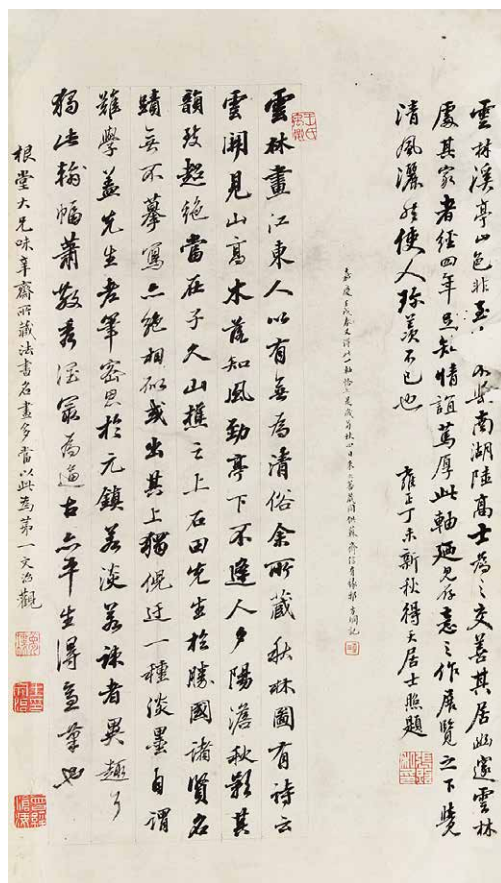 雲林溪亭山色南湖陸高士為之交善其居幽邃雲林
處其家者經四年足知情誼篤厚此軸廼意之作展覽之下覺
清風灑然使人殊羨不已也 雍正丁未新秋得天居士照題
嘉慶壬戌春又得此一軸
雲林畫江東人以有無為清俗余所藏秋林圖有詩云
雲開見山高木落知風勁亭下不逢人夕陽澹秋影其
韻致超絕當在子久山樵之上石田先生於勝國諸賢名
蹟無不摹寫亦絕相似或出其上獨倪迂一種淡墨自謂
難學蓋先生老筆密思於元鎮若淡若疎者異趣耳
獨此幅蕭散秀潤最為逼古亦平生得意筆也
根堂大兄味辛齋所藏法書名畫多當以此為第一文治觀